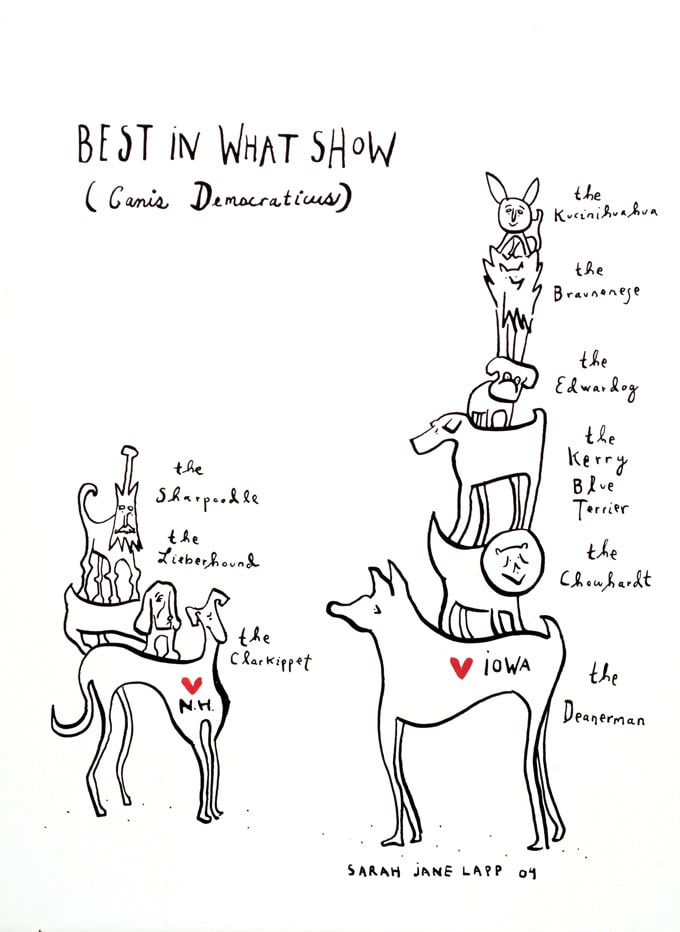 BEST IN WHAT SHOW
(Canis Democraticus)
the
Kucinihuahua
the
Braunanese
the
Edwardog
the
Kerry
Blue
Terrier
the
Chowhardt
IOWA
the
Deanerman
the
Sharpoodle
the
Lieberhound
the
Clarkippet
N.H.
SARAH JANE LAPP 04